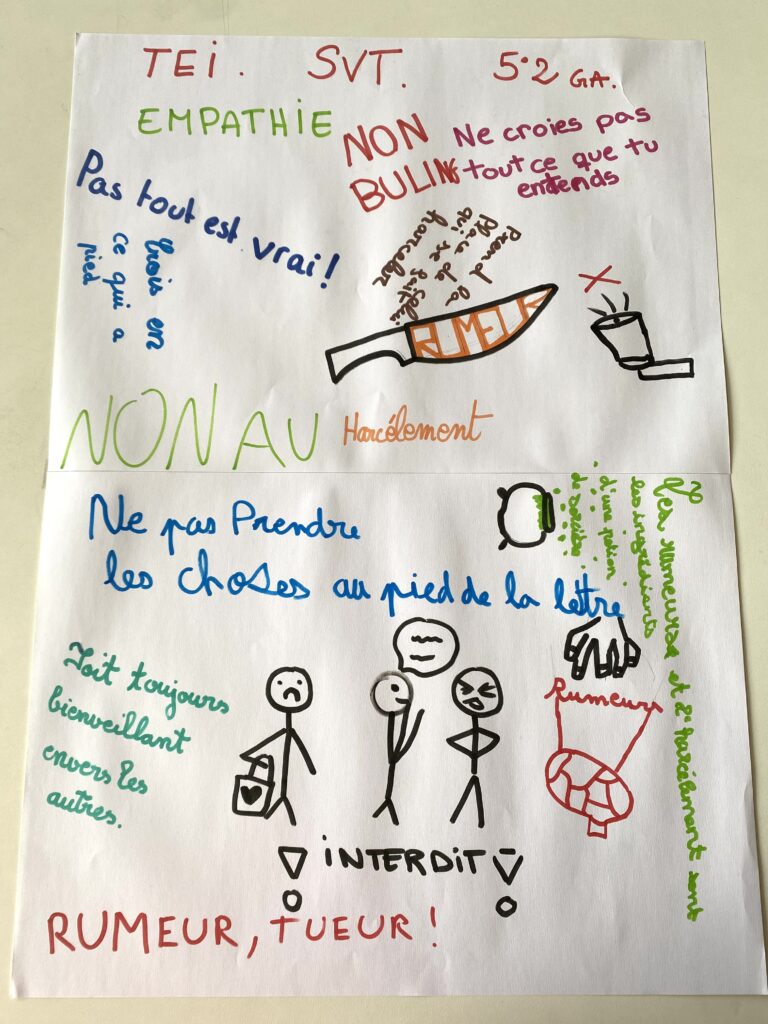 TEi. SVT. 5°2 GA.
EMPATHIE
NON
BULING
Ne croies pas
tout ce que tu
entends
Pas tout est vrai!
Crois en
ce qui a
pied
Prend la
place de celui
qui se fait
harceler
RUMEUR
NON AU Harcélement
Ne pas Prendre
les choses au pied de la lettre
Les rumeurs et l'harcélement sont
les ingrédients
d'une potion
de
Soit toujours
bienveillant
envers les
autres.
Rumeurs
iNTERDiT
RUMEUR, TUEUR!